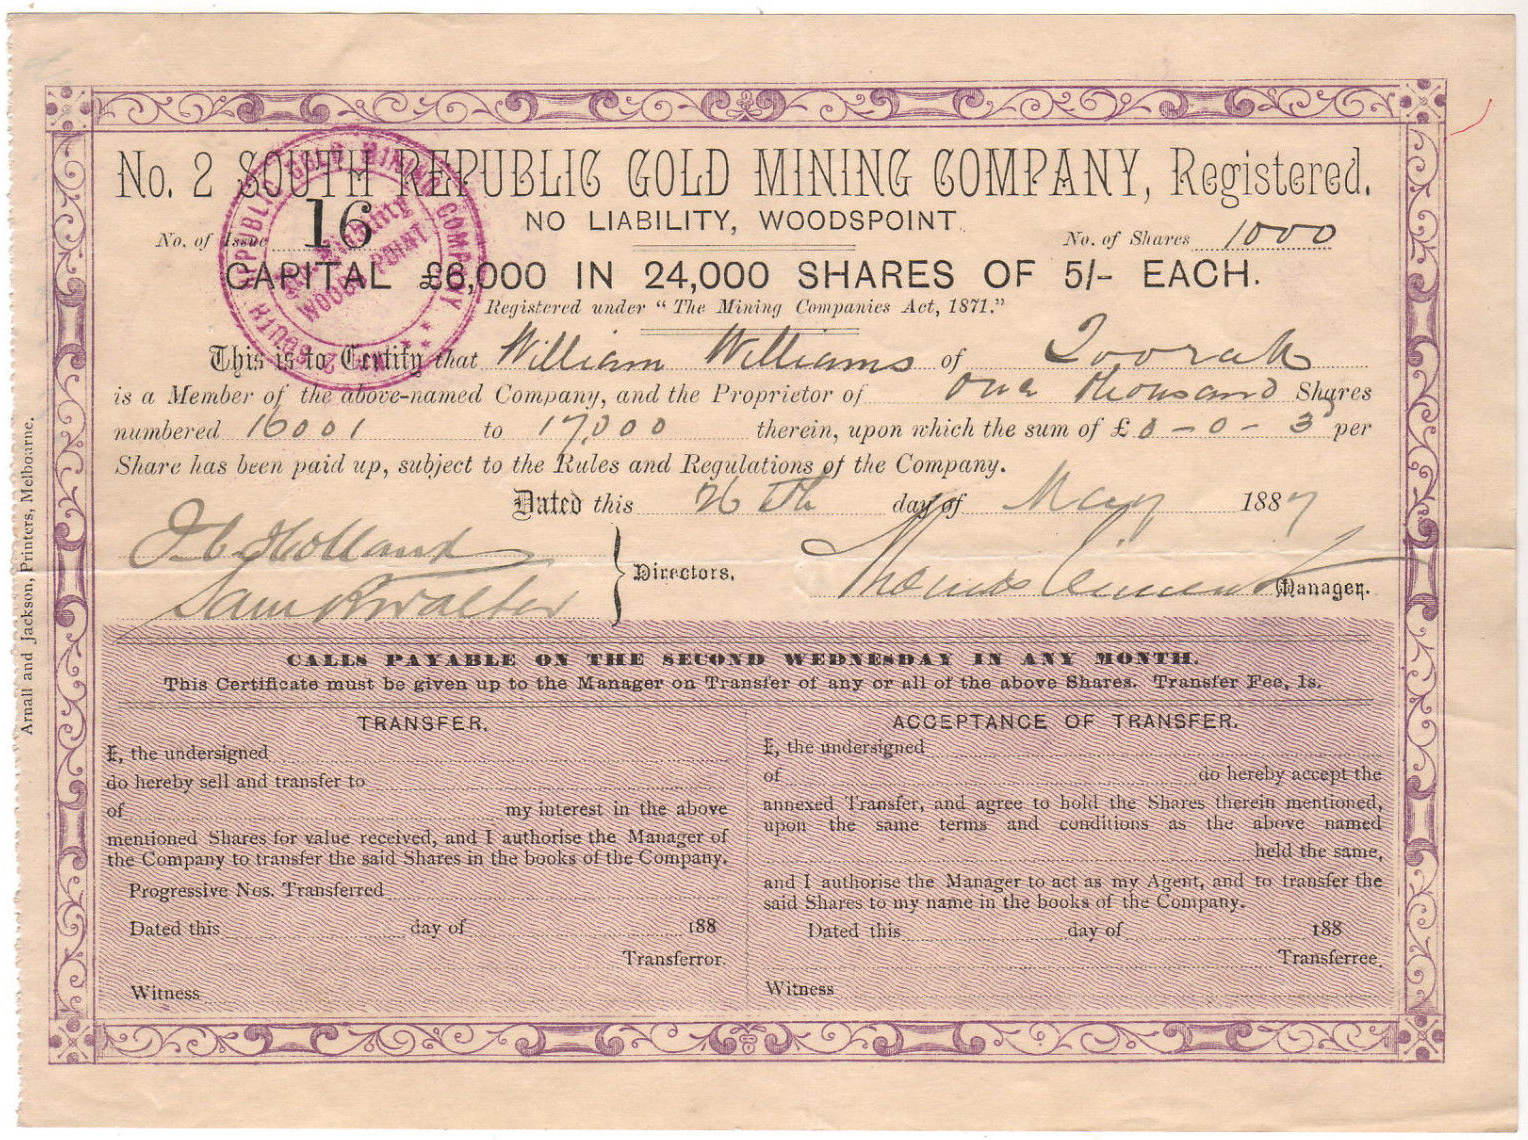 No. 2 SOUTH REPUBLIC GOLD MINING COMPANY, Registered.
NO LIABILITY, WOODSPOINT.
No. of Issue 16
No. of Shares 1000
CAPITAL £6,000 IN 24,000 SHARES OF 5/- EACH.
Registered under "The Mining Companies Act, 1871."
This is to Certify that William Williams of Toorak
is a Member of the above-named Company, and the Proprietor of One thousand Shares
numbered 16001 to 17,000 therein, upon which the sum of £ 0-0-3 per
Share has been paid up, subject to the Rules and Regulations of the Company.
Dated this 26th day of May 1887
Holland
Directors.
Manager.
Thomas
Sam Walter
CALLS PAYABLE ON THE SECOND WEDNESDAY IN ANY MONTH.
This Certificate must be given up to the Manager on Transfer of any or all of the above Shares. Transfer Fee, 1s.
TRANSFER.
I, the undersigned
do hereby sell and transfer to
of my interest in the above
mentioned Shares for value received, and I authorise the Manager of
the Company to transfer the said Shares in the books of the Company.
Progressive Nos. Transferred
Dated this day of 188
Transferror.
Witness
ACCEPTANCE OF TRANSFER.
I, the undersigned
of do hereby accept the
annexed Transfer, and agree to hold the Shares therein mentioned,
upon the same terms and conditions as the above named
held the same,
and I authorise the Manager to act as my Agent, and to transfer the
said Shares to my name in the books of the Company.
Dated this day of 188
Transferree.
Witness
Arnall and Jackson, Printers, Melbourne.
No. 2 SOUTH REPUBLIC GOLD MINING COMPANY
WOODS POINT